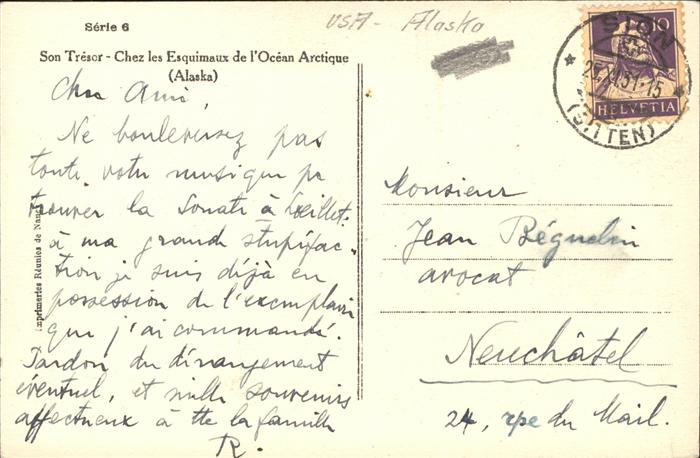 Série 6
USA - Alaska
Son Trésor - Chez les Esquimaux de l'Océan Arctique
(Alaska)
SION
25.XI.31-15
(SITTEN)
HELVETIA
Cher Ami,
Ne bouleversez pas
toute votre musique pr
trouver la Sonate à Loeillet.
à ma grande stupéfac-
tion je suis déjà en
possession de l'exemplaire
que j'ai commandé.
Pardon du dérangement
éventuel, et mille souvenirs
affectueux à tte la famille
R.
Imprimeries Réunies de Nancy
Monsieur
Jean Béguelin
avocat
Neuchâtel
24, rue du Mail.